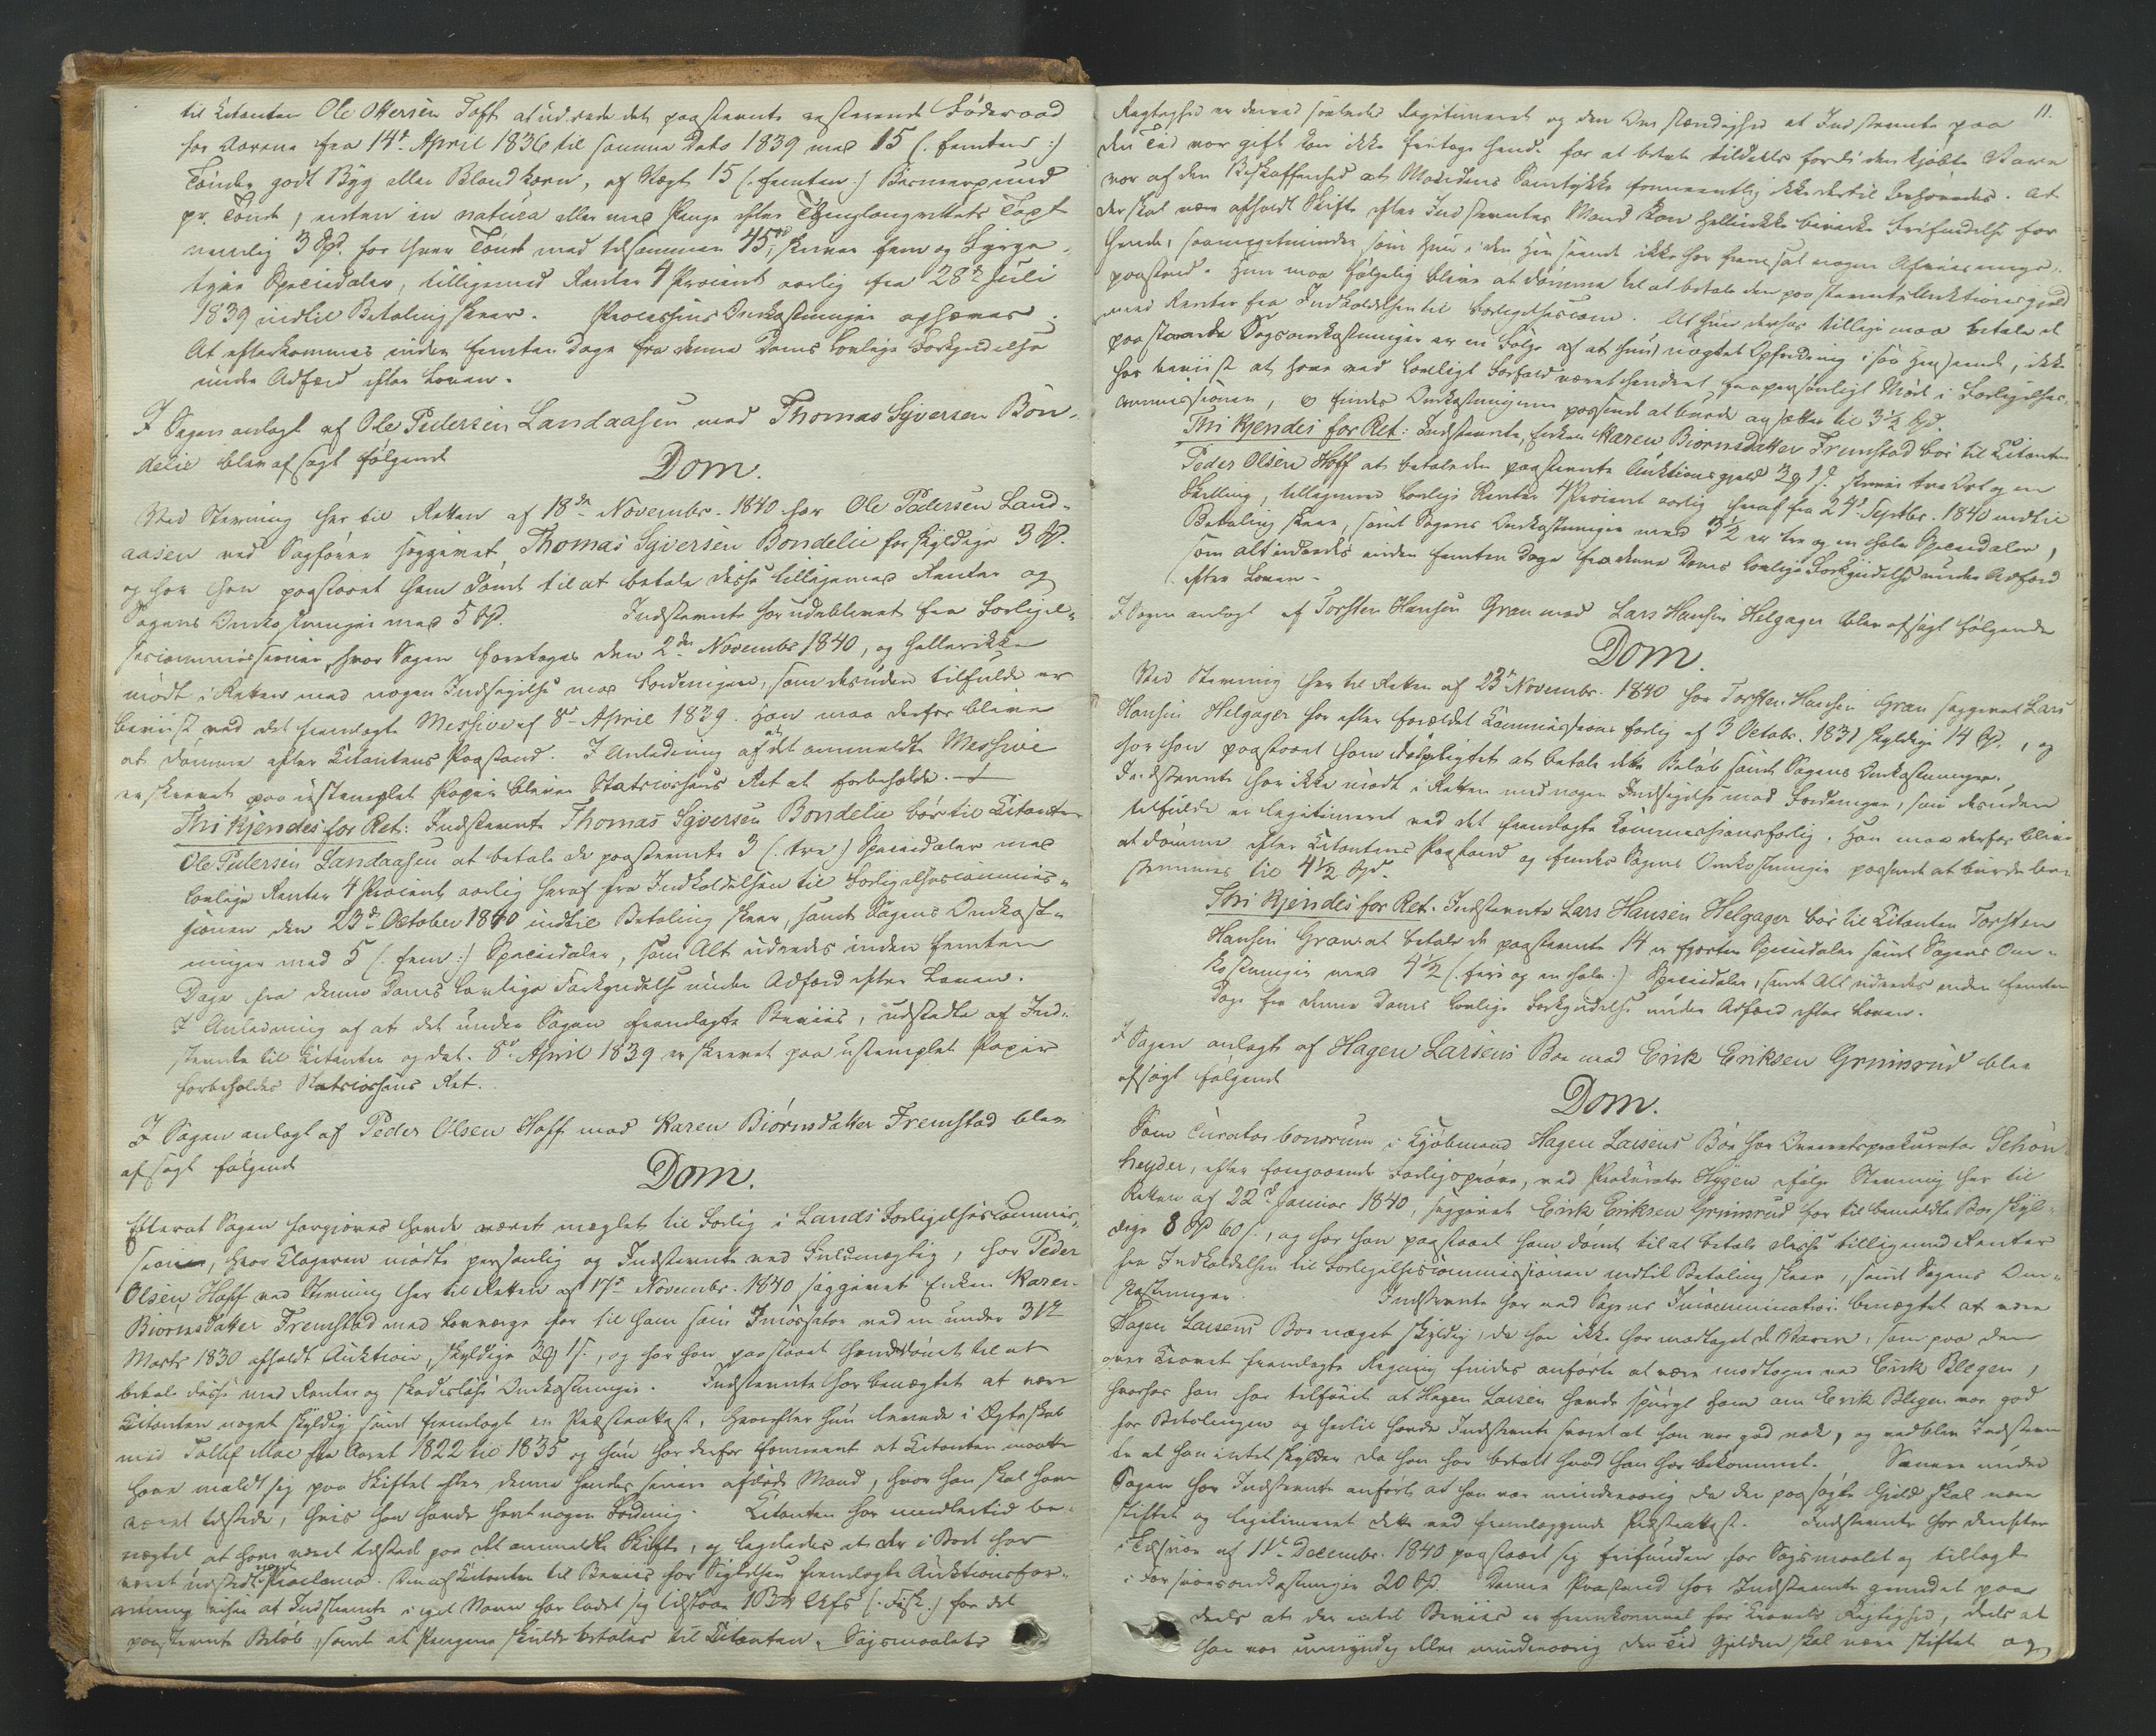 til Citanten Ole Ottersen Toft at udrede det paastevnte resterende Føderaad
for Aarene fra 14de April 1836 til samme Dato 1839 med 15 (: femten :)
Tønder godt Byg eller Blandkorn, af Vægt 15 (: femten :) Bismerpund
pr. Tønde, enten in natura eller med Penge efter Thinglaugrettets Taxt
nemlig 3 Spd. for hver Tønde med tilsammen 45, skriver fem og fyrge-
tyve Speciedaler, tilligemed Renter 4 Procent aarlig fra 28de Juli
1839 indtil Betaling skeer. Processens Omkostninger ophæves.
At efterkommes inden femten Dage fra denne Doms lovlige Forkyndelse
under Adfærd efter Loven.
I Sagen anlagt af Ole Pedersen Landaasen mod Thomas Syversen Bon-
delie blev afsagt følgende
Dom.
Ved Stevning her til Retten af 18de November 1840 har Ole Pedersen Land-
aasen ved Sagfører søggivet Thomas Syversen Bondelie for skyldige 3 Spd.
og har han paastaaet ham dømt til at betale disse tilligemed Renter og
Sagens Omkostninger med 5 Spd. Indstevnte har udeblevet fra Forligel-
sescommissionen, hvor Sagen foretoges den 2den Novembr 1840, og hellerikke
mødt i Retten med nogen Indsigelse mod Fordringen, som desuden tilfulde er
beviist ved det fremlagte Missive af 8de April 1839. Han maa derfor blive
at dømme efter Citantens Paastand. I Anledning af at det anmeldte Missive
er skrevet paa ustemplet Papir bliver Statscassens Ret at forbeholde.
Thi kjendes for Ret: Indstevnte Thomas Syversen Bondelie bør til Citanten
Ole Pedersen Landaasen at betale de paastevnte 3 (: tre) Speciedaler med
lovlige Renter 4 Procent aarlig heraf fra Indkaldelsen til Forligelsescommis-
sionen den 23de October 1840 indtil Betaling skeer, samt Sagens Omkost-
ninger med 5 (: fem :) Speciedaler, som Alt udredes inden femten
Dage fra denne Doms lovlige Forkyndelse under Adfærd efter Loven.
I Anledning af at det under Sagen fremlagte Beviis, udstedte af Ind-
stevnte til Citanten og dat. 8de April 1839 er skrevet paa ustemplet Papir
forbeholdes Statscassens Ret.
I Sagen anlagt af Peder Olsen Hoff mod Karen Biørnsdatter Fremstad blev
afsagt følgende
Dom.
Efterat Sagen forgjæves havde været mæglet til Forlig i Lands Forligelsescommis-
sion, hvor Klageren mødte personlig og Indstevnte ved Fuldmægtig, har Peder
Olsen Hoff ved Stevning her til Retten af 17de Novembr. 1840 søggivet Enken Karen
Biørnsdatter Fremstad med Laugværge for til ham som Incassator ved en under 31te
Marts 1830 afholdt Auktion, skyldige 3 Ort 1 s., og har han paastaaet hende dømt til at
betale disse med Renter og skadesløse Omkostninger. Indstevnte har benægtet at være
Citanten noget skyldig samt fremlagt en Præsteattest, hvorefter hun levede i Ægteskab
med Tollef Moe fra Aaret 1822 til 1835 og hun har derfor formeent at Citanten maatte
have meldt sig paa Skiftet efter denne hendes senere afdøde Mand, hvor han skal have
været tilstede, hvis han havde havt nogen Fordring. Citanten har imidlertid be-
nægtet at have været tilstede paa det anmeldte Skifte, og ligeledes at der i Boet har
været udstedt noget Proclama. Den af Citanten til Beviis for Sigtelsen fremlagte Auktionsfor-
retning viser at Indstevnte i eget Navn har ladet sig tilslaae 1 (: Fisk.) for det
paastevnte Beløb, samt at Pengene skulde betales til Citanten. Søgsmaalets
11.
Rigtighed er derved saaledes legitimeret og den Omstændighed at Indstevnte paa
den Tid var gift kan ikke fritage hende for at betale tildeels fordi den kjøbte Vare
var af den Beskaffenhed at Mandens Samtykke formeentlig ikke dertil behøvedes. At
der skal være afholdt Skifte efter Indstevntes Mand kan hellerikke bevirke Frifindelse for
hende, saameget mindre, som hun i den Henseende ikke har fremsat nogen Afviisnings-
paastand. Hun maa følgelig blive at dømme til at betale den paastevnte Auktionsgjeld
med Renter fra Indkaldelsen til Forligelsescom. At hun derfor tillige maa betale de
paastevnte Sagsomkostninger er en Følge af at hun, uagtet Opfordring i saa Henseende, ikke
har beviist at have ved lovligt Forfald været hindret fra personligt Møde i Forligelses-
commissionen, og findes Omkostningerne passende at burde ansættes til 3½ Spd.
Thi kjendes for Ret: Indstevnte, Enken Karen Biørnsdatter Fremstad bør til Citanten
Peder Olsen Hoff at betale den paastevnte Auktionsgjeld 3 Ort 1 s. skriver tre Ort og en
Skilling, tilligemed lovlige Renter 4 Procent aarlig heraf fra 24de Septbr. 1840 indtil
Betaling skeer, samt Sagens Omkostninger med 3½ er tre og en halv Speciedaler,
som alt udredes inden femten Dage fra denne Doms lovlige Forkyndelse under Adfærd
efter Loven.
I Sagen anlagt af Torsten Hansen Gran mod Lars Hansen Helgager blev afsagt følgende
Dom.
Ved Stevning her til Retten af 23de Novembr. 1840 har Torsten Hansen Gran søggivet Lars
Hansen Helgager for efter forældet Commissionsforlig af 3 Octobr. 1831 skyldige 14 Spd., og
har han paastaaet ham tilpligtet at betale dette Beløb samt Sagens Omkostninger.
Indstevnte har ikke mødt i Retten med nogen Indsigelse mod Fordringen, som desuden
tilfulde er legitimeret ved det fremlagte Commissionsforlig. Han maa derfor blive
at dømme efter Citantens Paastand og findes Sagens Omkostninger passende at burde be-
stemmes til 4½ Spd.
Thi kjendes for Ret: Indstevnte Lars Hansen Helgager bør til Citanten Torsten
Hansen Gran at betale de paastevnte 14 er fjorten Speciedaler samt Sagens Om-
kostninger med 4½ (: fire og en halv :) Speciedaler, samt Alt udredes inden femten
Dage fra denne Doms lovlige Forkyndelse under Adfærd efter Loven.
I Sagen anlagt af Hagen Larsens Boe mod Erik Eriksen Grimsrud blev
afsagt følgende
Dom.
Som Curator bonorum i Kjøbmand Hagen Larsens Boe har Overretsprokurator Schøn-
heyder, efter foregaaende Forligsprøve, ved Prokurator Hygen ifølge Stevning her til
Retten af 22de Januar 1840, søggivet Erik Eriksen Grimsrud for til bemeldte Boe skyl-
dige 8 Spd 60 s., og har han paastaaet ham dømt til at betale disse tilligemed Renter
fra Indkaldelsen til Forligelsescommissionen indtil Betaling skeer, samt Sagens Om-
kostninger. Indstevnte har ved Sagens Incamination benægtet at være
Hagen Larsens Boe noget skyldig, da han ikke har modtaget de Varer, som paa den
over Kravet fremlagte Regning findes anførte at være modtagne ved Erik Blegen,
hvorhos han har tilføiet at Hagen Larsen havde spurgt ham om Erik Blegen var god
for Betalingen og hertil havde Indstevnte svaret at han var god nok, og vedblev Indstevn-
te at han intet skylder da han har betalt hvad han har bekommet. Senere under
Sagen har Indstevnte anført at han var mindreaarig da den paasøgte Gjeld skal være
stiftet og legitimeret dette ved fremlæggende Præsteattest. Indstevnte har derefter
i Tilsvar af 11te Decembr. 1840 paastaaet sig frifunden for Søgsmaalet og tillagt
i Forsvarsomkostninger 20 Spd. Denne Paastand har Indstevnte grundet paa
deels at der intet Beviis er fremkommet for Kravets Rigtighed, deels at
han var umyndig eller mindreaarig den Tid Gjelden skal være stiftet og